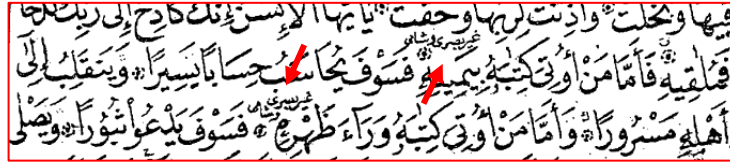 فيها وتخلت ۝ وأذنت لربها وحقت ۝ يا يها الإنسن إنك كادح إلى ربك كدحا
فملقيه ۝ فأما من أوتي كتبه بيمينه ۝ فسوف يحاسب حسابا يسيرا ۝ وينقلب إلى
أهله مسرورا ۝ وأما من أوتي كتبه وراء ظهره ۝ فسوف يدعوا ثبورا ۝ ويصلى